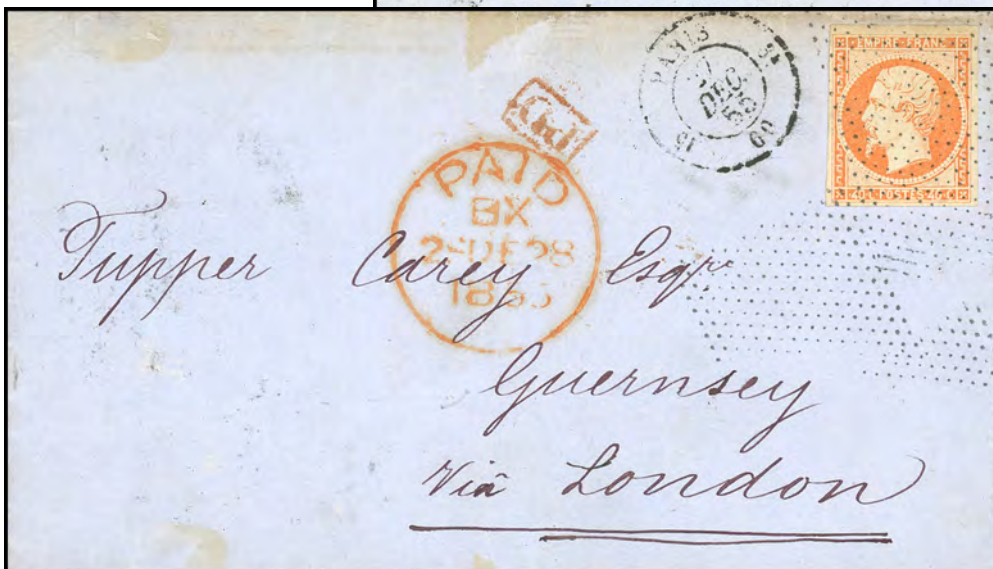 PARIS
60
EMPIRE FRANC
40 C. POSTES 40 C.
P.D.
PAID
BX
28 DE 28
Tupper Carey Esqre
Guernsey
Viâ London